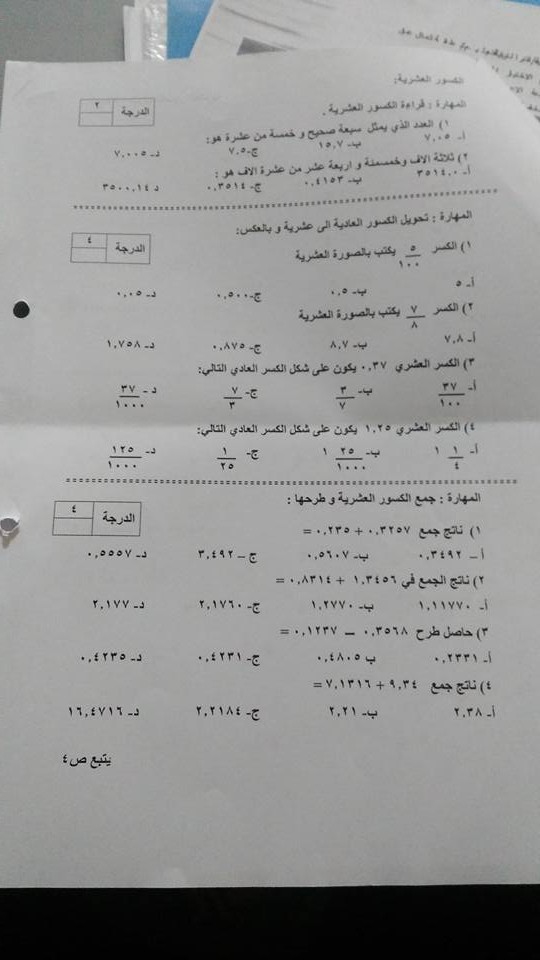 الكسور العشرية:
المهارة : قراءة الكسور العشرية .
الدرجة ٢
١) العدد الذي يمثل سبعة صحيح و خمسة من عشرة هو:
أ- ٧,٠٥ ب- ١٥,٧ ج- ٧,٥ د- ٧,٠٠٥
٢) ثلاثة الاف وخمسمئة و اربعة عشر من عشرة الاف هو :
أ- ٣٥١٤,٠ ب- ٠,٤١٥٣ ج- ٠,٣٥١٤ د- ٣٥٠٠,١٤
المهارة : تحويل الكسور العادية الى عشرية و بالعكس:
الدرجة ٤
١) الكسر ٥/١٠٠ يكتب بالصورة العشرية
أ- ٥ ب- ٠,٥ ج- ٠,٥٠٠ د- ٠,٠٥
٢) الكسر ٧/٨ يكتب بالصورة العشرية
أ- ٧,٨ ب- ٨,٧ ج- ٠,٨٧٥ د- ١,٧٥٨
٣) الكسر العشري ٠,٣٧ يكون على شكل الكسر العادي التالي:
أ- ٣٧/١٠٠ ب- ٣/٧ ج- ٧/٣ د- ٣٧/١٠٠٠
٤) الكسر العشري ١,٢٥ يكون على شكل الكسر العادي التالي:
أ- ١ ١/٤ ب- ١ ٢٥/١٠٠٠ ج- ١/٢٥ د- ١٢٥/١٠٠٠
المهارة : جمع الكسور العشرية و طرحها :
الدرجة ٤
١) ناتج جمع ٠,٣٢٥٧ + ٠,٢٣٥ =
أ – ٠,٣٤٩٢ ب- ٠,٥٦٠٧ ج – ٣,٤٩٢ د- ٠,٥٥٥٧
٢) ناتج الجمع في ١,٣٤٥٦ + ٠,٨٣١٤ =
أ- ١,١١٧٧٠ ب- ١,٢٧٧٠ ج- ٢,١٧٦٠ د- ٢,١٧٧
٣) حاصل طرح ٠,٣٥٦٨ – ٠,١٢٣٧ =
أ- ٠,٢٣٣١ ب ٠,٤٨٠٥ ج- ٠,٤٢٣١ د- ٠,٤٢٣٥
٤) ناتج جمع ٩,٣٤ + ٧,١٣١٦ =
أ- ٢,٣٨ ب- ٢,٢١ ج- ٢,٢١٨٤ د- ١٦,٤٧١٦
يتبع ص٤